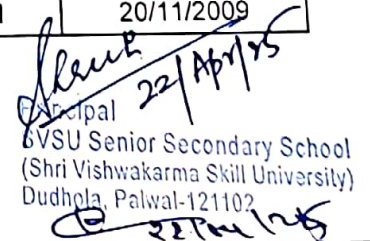 20/11/2009
22/Apr/25
Principal
SVSU Senior Secondary School
(Shri Vishwakarma Skill University)
Dudhola, Palwal-121102